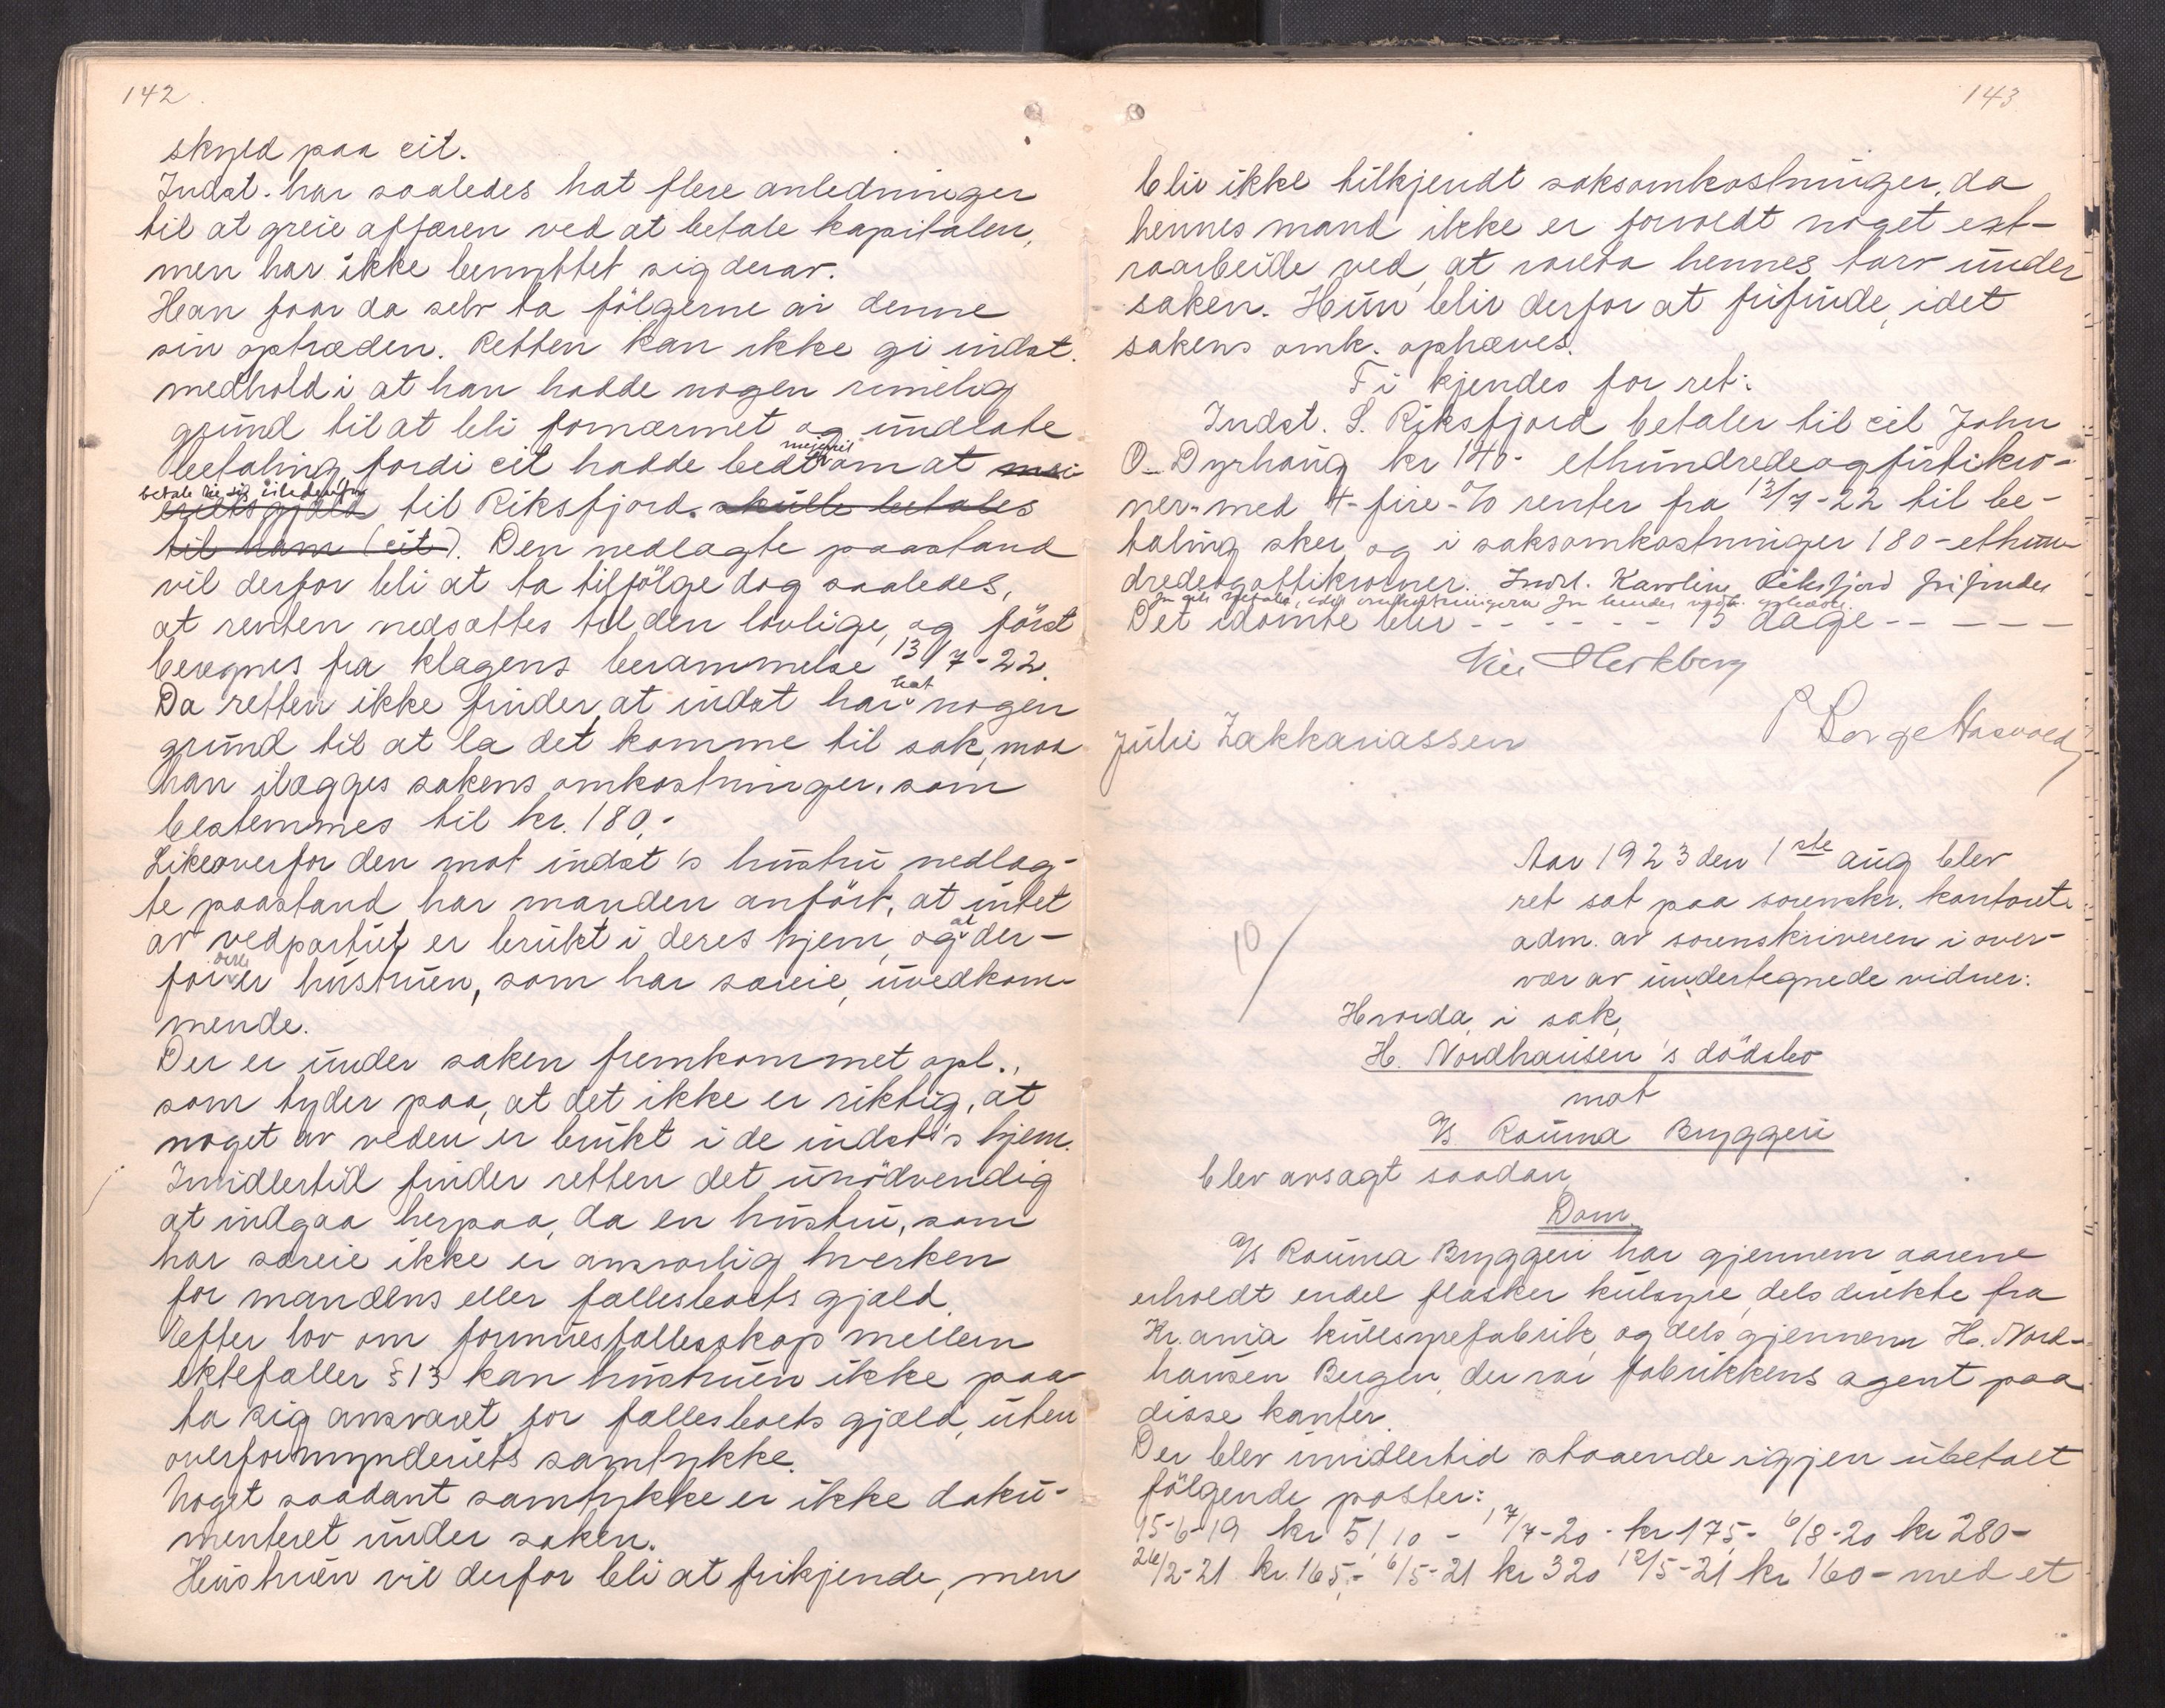 142.
skyld paa cit.
Indst. har saaledes hat flere anledninger
til at greie affæren ved at betale kapitalen,
men har ikke benyttet sig derav.
Han faar da selv ta følgerne av denne
sin optræden. Retten kan ikke gi indst.
medhold i at han hadde nogen rimelig
grund til at bli fornærmet og undlate
betaling fordi cit hadde bedt om at
til Riksfjord. skulle betales
til ham (cit). Den nedlagte paastand
vil derfor bli at ta tilfølge dog saaledes,
at renten nedsattes til den lovlige, og først
beregnes fra klagens berammelse 13/7-22.
Da retten ikke finder at indst har hat nogen
grund til at la det komme til sak, maa
han ilægges sakens omkostninger, som
bestemmes til kr. 180.-
Likeoverfor den mot indst's hustru nedlag-
te paastand har manden anført, at intet
av vedpartiet er brukt i deres hjem, og at der-
for er hustruen, som har særeie, uvedkom-
mende.
Der er under saken fremkommet opl.,
som tyder paa, at det ikke er riktig, at
noget av veden er brukt i de indst's hjem.
Imidlertid finder retten det unødvendig
at indgaa herpaa, da en hustru, som
har særeie ikke er ansvarlig hverken
for mandens eller fællesboets gjæld.
Efter lov om formuesfællesskap mellem
ektefæller § 13 kan hustruen ikke paa-
ta sig ansvaret for fællesboets gjæld, uten
overformynderiets samtykke.
Noget saadant samtykke er ikke doku-
menteret under saken.
Hustruen vil derfor bli at frikjende, men
143
blir ikke tilkjendt saksomkostninger, da
hennes mand ikke er forvoldt noget ext-
raarbeide ved at vareta hennes tarv under
saken. Hun blir derfor at frifinde, idet
sakens omk. ophæves.
Ti kjendes for ret:
Indst. S. Riksfjord betaler til cit John
O. Dyrhaug kr 140- ethundredeogfirtikro-
ner- med 4-fire-% renter fra 13/7-22 til be-
taling sker, og i saksomkostninger 180-ethun-
dredeogottikroner. Indst. Karoline Riksfjord frifindes
for cits tiltale, idet omkostningerne for hendes vedk. ophæves.
Det idømte blir - - - - - - 15 dage - - - - -
Julie Zakkariassen
Aar 1923 den 1ste aug blev
ret sat paa sorenskr. kontoret
adm. av sorenskriveren i over-
vær av undertegnede vidner:
10/
Hvorda i sak,
H. Nordhausen's dødsbo
mot
A/S Rauma Bryggeri
blev avsagt saadan
Dom.
A/S Rauma Bryggeri har gjennem aarene
erholdt endel flasker kulsyre, dels direkte fra
Kr.ania kullsyrefabrik, og dels gjennem H. Nord-
hausen Bergen, der var fabrikkens agent paa
disse kanter.
Der blev imidlertid staaende igjen ubetalt
følgende poster:
15-6-19 kr 51,10 - 17/7-20 - kr 175,- 6/8-20 kr 280-
26/2-21 kr. 165,- 6/5-21 kr 320 12/5-21 kr 160- med et